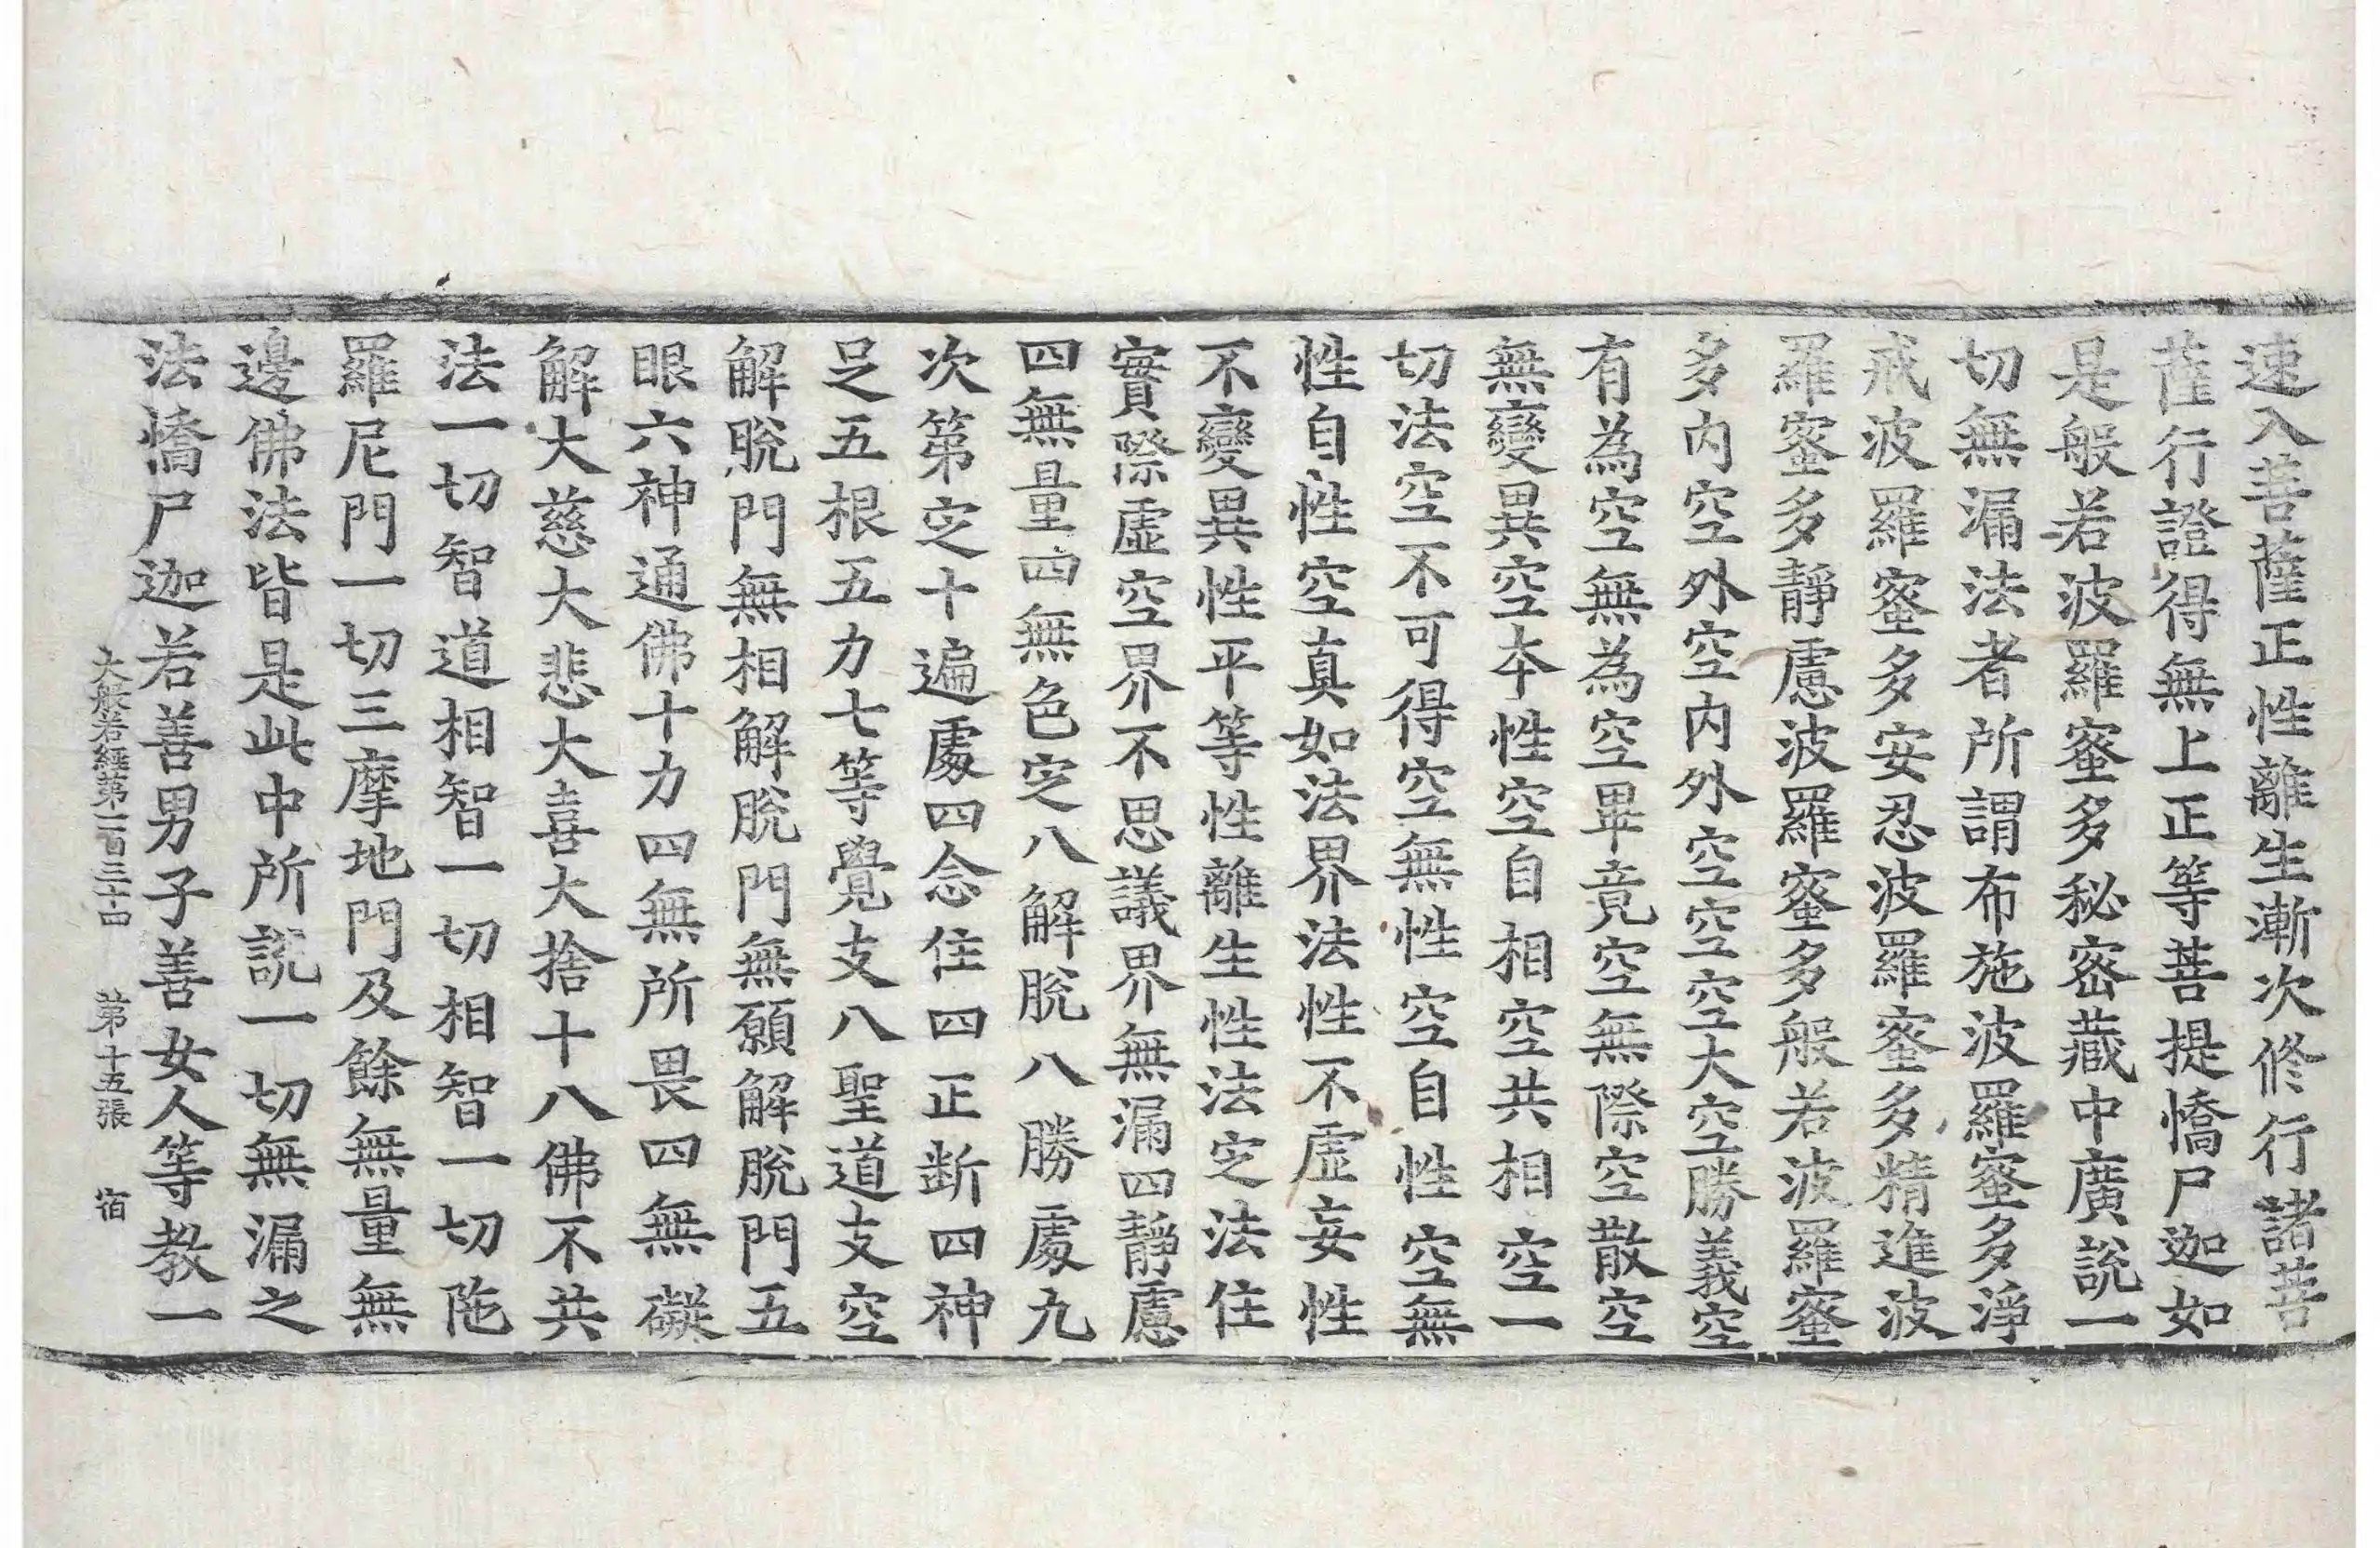 速入菩薩正性離生漸次修行諸菩
薩行證得無上正等菩提憍尸迦如
是般若波羅蜜多秘密藏中廣說一
切無漏法者所謂布施波羅蜜多淨
戒波羅蜜多安忍波羅蜜多精進波
羅蜜多靜慮波羅蜜多般若波羅蜜
多內空外空內外空空空大空勝義空
有為空無為空畢竟空無際空散空
無變異空本性空自相空共相空一
切法空不可得空無性空自性空無
性自性空真如法界法性不虛妄性
不變異性平等性離生性法定法住
實際虛空界不思議界無漏四靜慮
四無量四無色定八解脫八勝處九
次第定十遍處四念住四正斷四神
足五根五力七等覺支八聖道支空
解脫門無相解脫門無願解脫門五
眼六神通佛十力四無所畏四無礙
解大慈大悲大喜大捨十八佛不共
法一切智道相智一切相智一切陁
羅尼門一切三摩地門及餘無量無
邊佛法皆是此中所說一切無漏之
法憍尸迦若善男子善女人等教一
大般若經第一百三十四 第十五張 宿